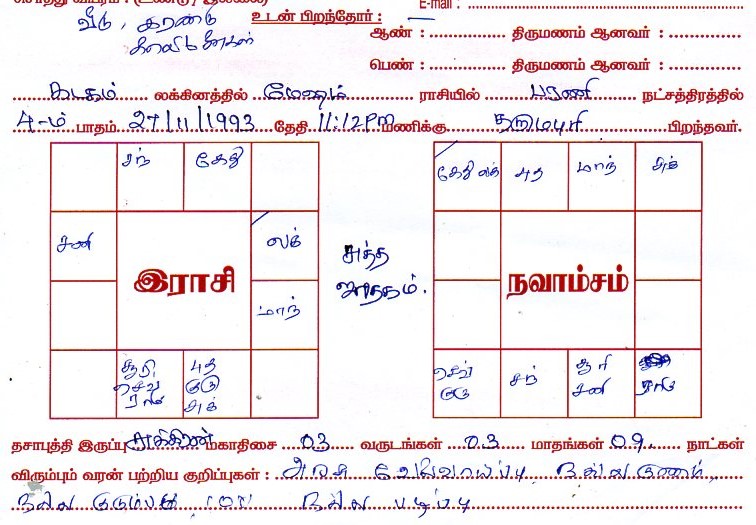 சொத்து விபரம் : (உண்டு / இல்லை) E-mail :
வீடு, கரண்டு உடன் பிறந்தோர் :
ஆண் : திருமணம் ஆனவர் :
பெண் : திருமணம் ஆனவர் :
கடகம் லக்கினத்தில் மேஷம் ராசியில் பரணி நட்சத்திரத்தில்
4-ம் பாதம் 27/11/1993 தேதி 11:12PM மணிக்கு தருமபுரி பிறந்தவர்.
சந் கேது
சனி லக்
இராசி
மாந்
சூரி செவ் ராகு புத குரு சுக்
சுத்த ஜாதகம்.
கேது லக் புத மாந் சுக்
நவாம்சம்
செவ் குரு சந் சூரி சனி ராகு
தசாபுத்தி இருப்பு சுக்கிரன் மகாதிசை 03 வருடங்கள் 03 மாதங்கள் 09 நாட்கள்
விரும்பும் வரன் பற்றிய குறிப்புகள் : அரசு வேலைவாய்ப்பு, நல்ல குணம்,
நல்ல குடும்பம் நல்ல படிப்பு